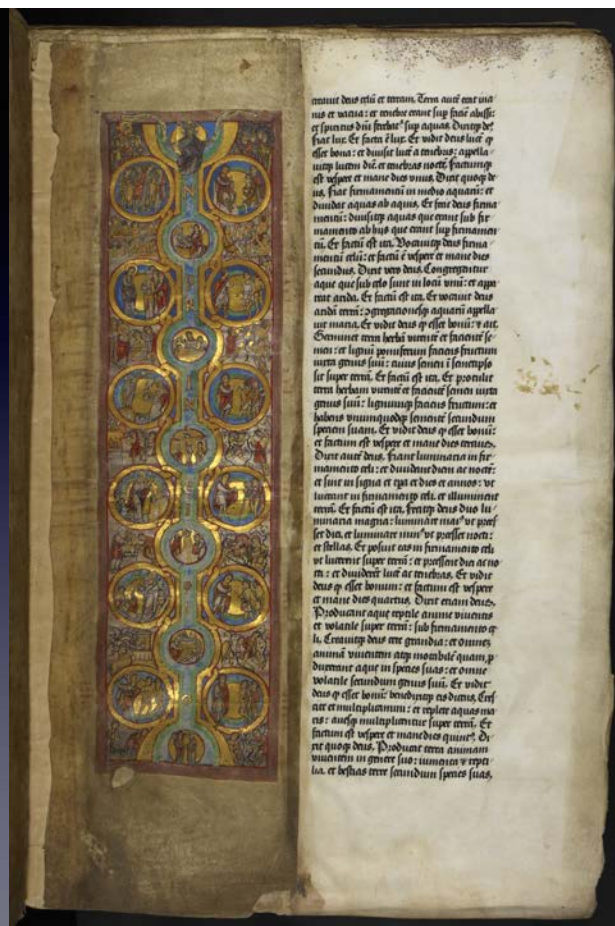 creauit deus celū et terram. Terra autē erat ina
nis et vacua: et tenebre erant sup faciē abissi:
et spiritus dñi ferebat² sup aquas. Dixitqꝫ de²
fiat lux. Et facta ē lux. Et vidit deus lucē ꝙ
esset bona: et diuisit lucē a tenebris: appella
uitqꝫ lucem diē et tenebras noctē. Factumqꝫ
est vespere et mane dies vnus. Dixit quoqꝫ de
us. Fiat firmamentū in medio aquarū: et
diuidat aquas ab aquis. Et fecit deus firma
mentū: diuisitqꝫ aquas que erant sub fir
mamento ab hijs que erant sup firmamen
tū. Et factū est ita. Vocauitqꝫ deus firma
mentū celū: et factū ē vespere et mane dies
secundus. Dixit vero deus. Congregentur
aque que sub celo sunt in locū vnū: et appa
reat arida. Et factū est ita. Et vocauit deus
aridā terrā: ꝯgregationesqꝫ aquarū appella
uit maria. Et vidit deus ꝙ esset bonū: et ait.
Germinet terra herbā virentē et facientē se
men: et lignū pomiferum faciens fructum
iuxta genus suū: cuius semen ī semetipso
sit super terrā. Et factū est ita. Et protulit
terra herbam virentē et facientē semen iuxta
genus suū: lignumqꝫ faciens fructum: et
habens vnumquodqꝫ sementē secundum
speciem suam. Et vidit deus ꝙ esset bonū:
et factum est vespere et mane dies tercius.
Dixit autē deus. Fiant luminaria in fir
mamento celi: et diuidant diem ac noctē:
et sint in signa et tpa et dies et annos: vt
luceant in firmamento celi. et illuminent
terrā. Et factū est ita. Fecitqꝫ deus duo lu
minaria magna: luminare mai² vt preess
et diei. et luminare min² vt preesset nocti:
et stellas. Et posuit eas in firmamento celi
vt lucerent super terrā: et preessent diei ac no
cti: et diuiderēt lucē ac tenebras. Et vidit
deus ꝙ esset bonum: et factum est vespere
et mane dies quartus. Dixit etiam deus.
Producant aque reptile anime viuentis
et volatile super terrā: sub firmamento ce
li. Creauitqꝫ deus cete grandia: et omnem
animā viuentem atqꝫ motabilē quam ꝓ
duxerant aque in species suas: et omne
volatile secundum genus suū. Et vidit
deus ꝙ esset bonū: benedixitqꝫ eis dicens. Cres
cite et multiplicamini: et replete aquas ma
ris: auesqꝫ multiplicentur super terrā. Et
factum est vespere et mane dies quint². Di
xit quoqꝫ deus. Producat terra animam
viuentem in genere suo: iumenta et repti
lia. et bestias terre secundum species suas.